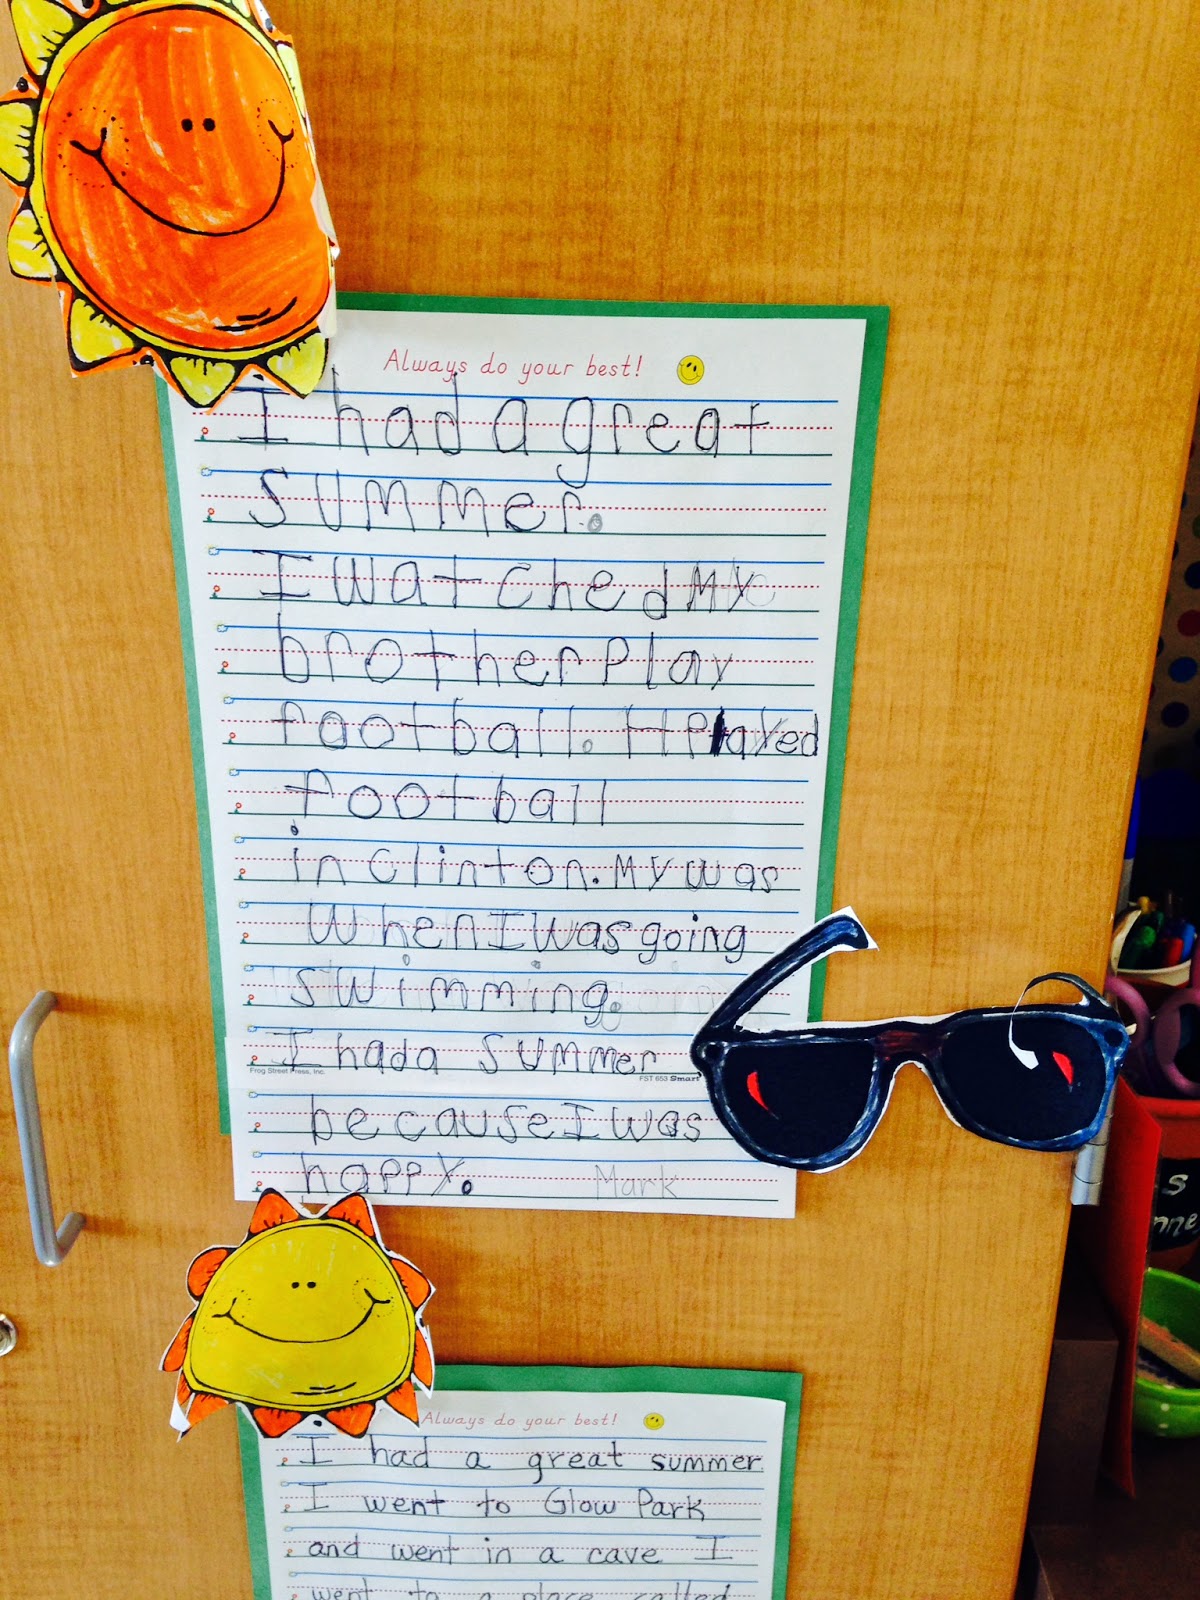 Always do your best!
I had a great
summer.
I watched My
brother Play
football. H Played
football
in Clinton. My was
when I was going
swimming.
I had a summer
Frog Street Press, Inc. FST 653 Smart
because I was
happy. Mark
Always do your best!
I had a great summer.
I went to Glow Park
and went in a cave I
went to a place called